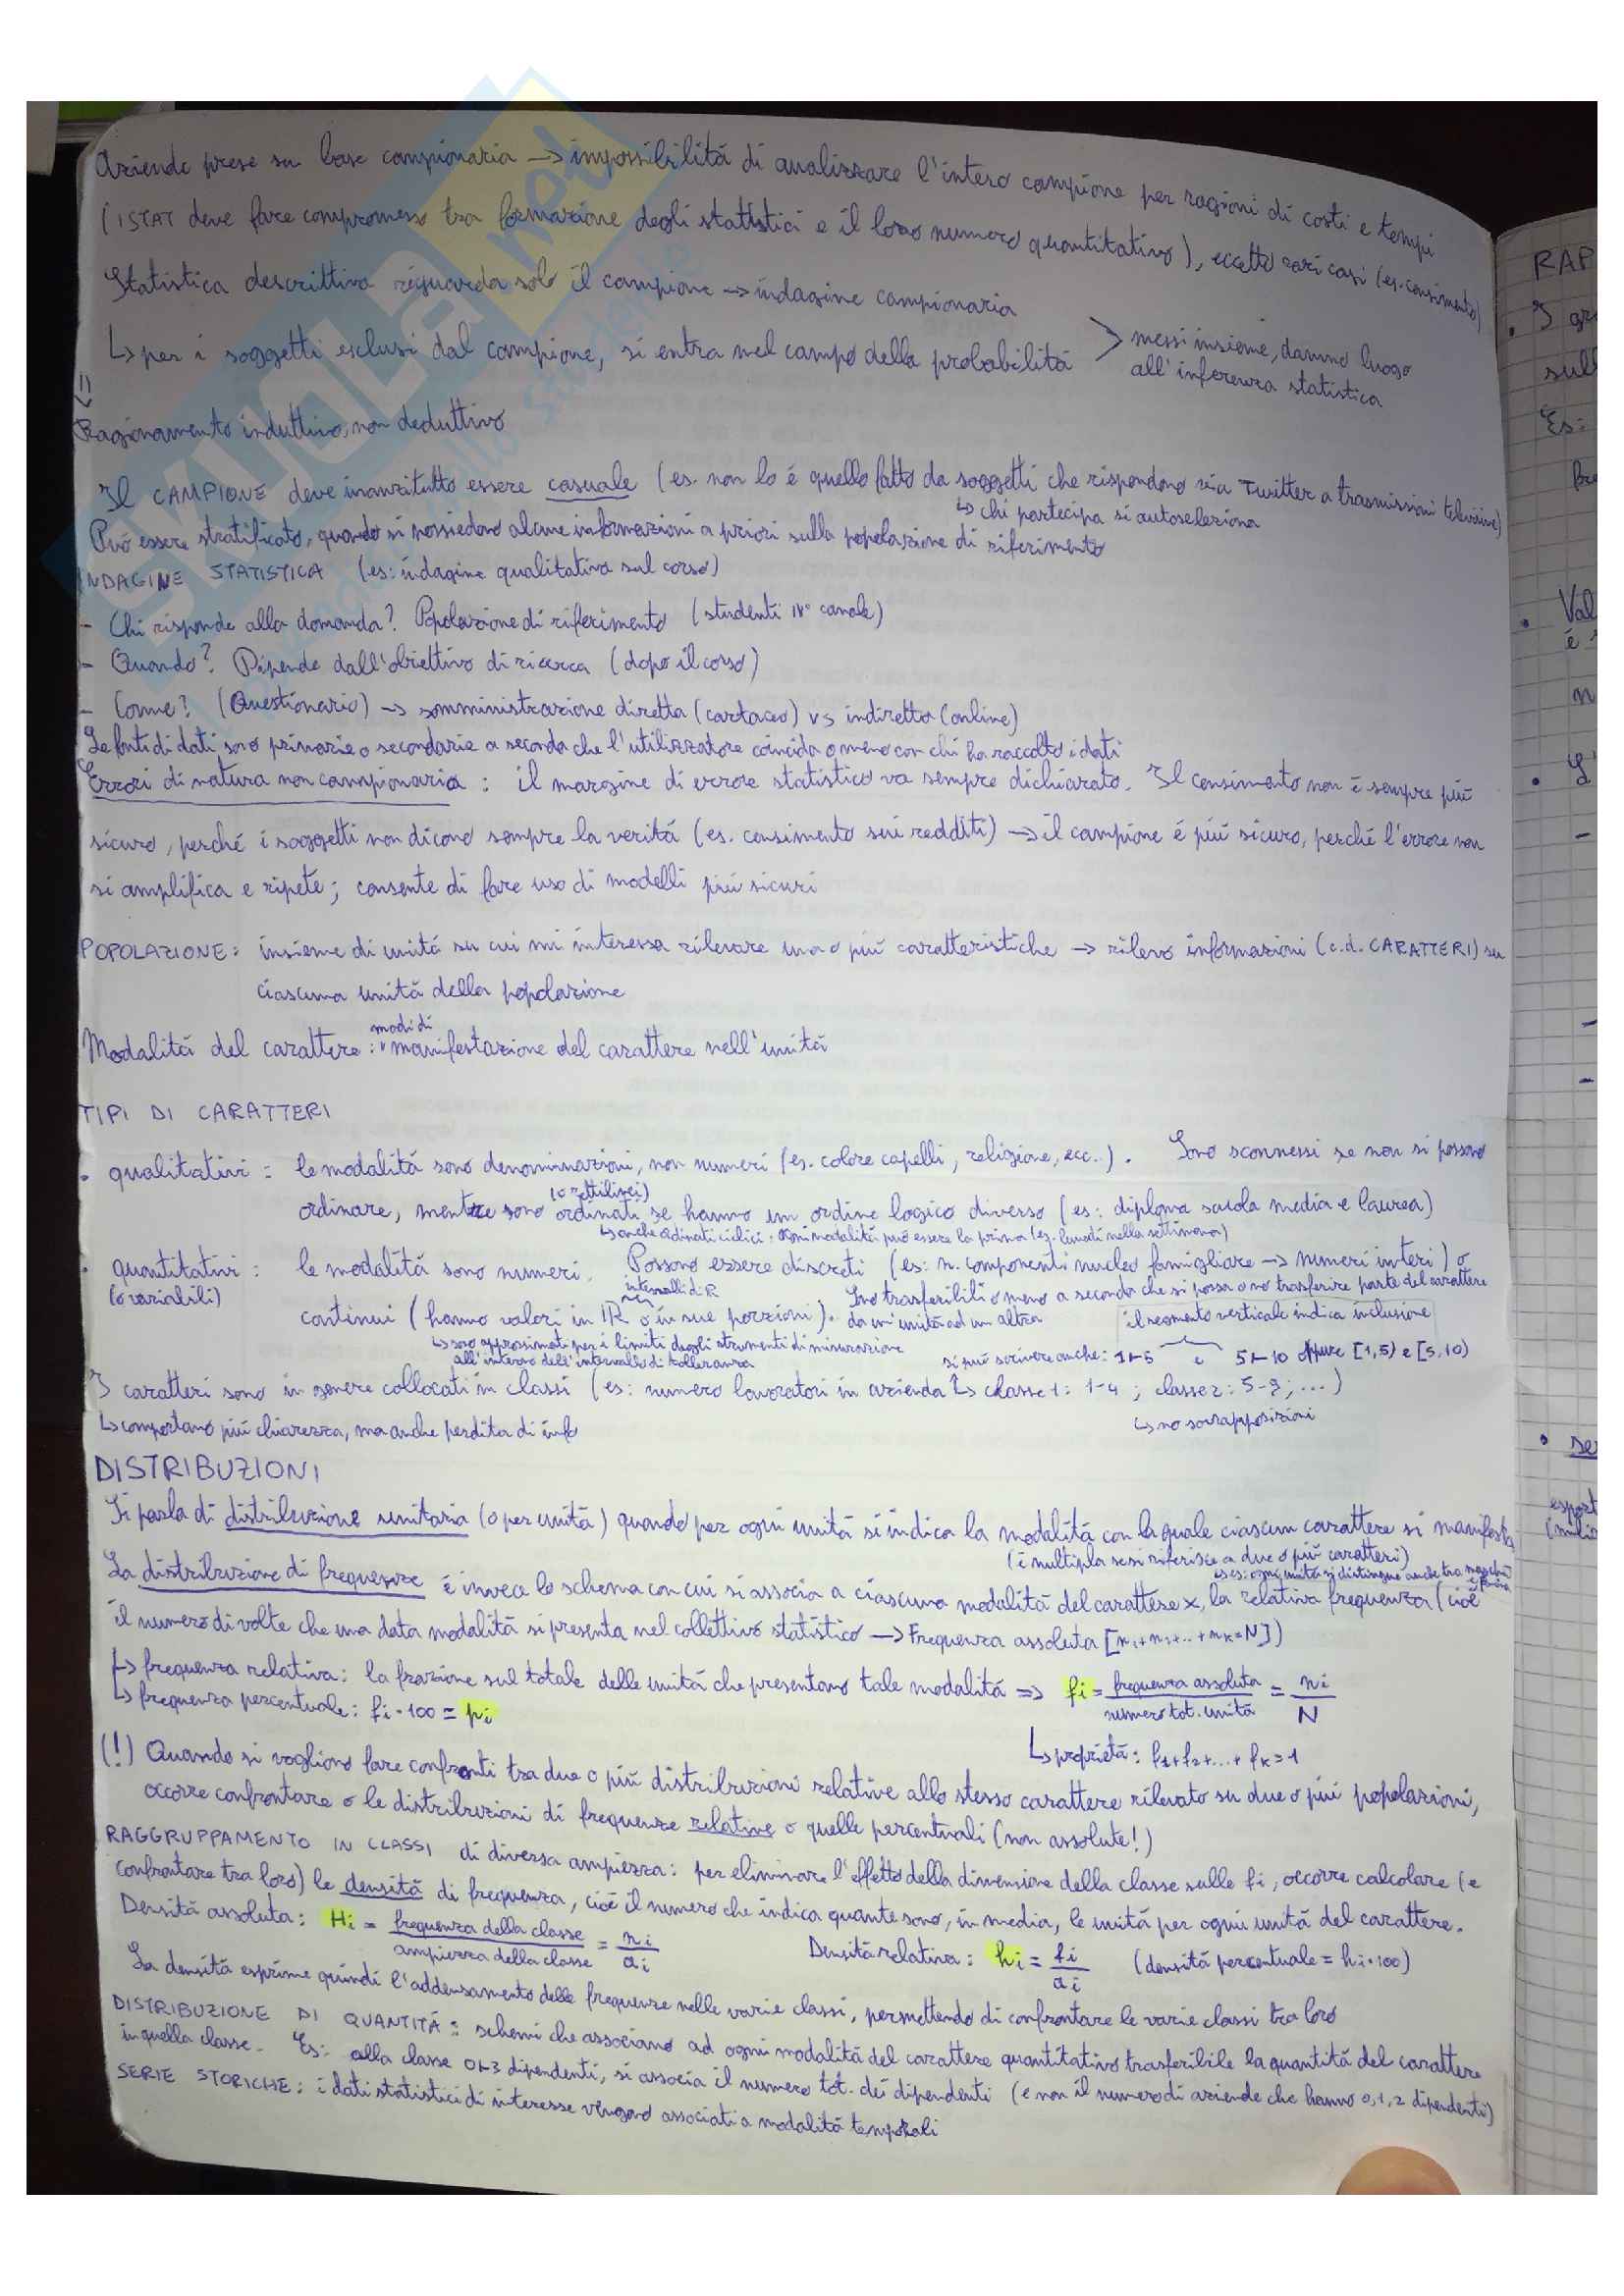 Aziende prese su base campionaria → impossibilitá di analizzare l'intero campione per ragioni di costi e tempi
(ISTAT deve fare compromesso tra formazione degli statistici e il loro numero quantitativo), eccetto rari casi (es. censimento)
Statistica descrittiva riguarda solo il campione → indagine campionaria
↳ per i soggetti esclusi dal campione, si entra nel campo della probabilitá > messi insieme, danno luogo
all'inferenza statistica
Ragionamento induttivo, non deduttivo
Il CAMPIONE deve innanzitutto essere casuale (es. non lo é quello fatto da soggetti che rispondono via Twitter a trasmissioni televisive)
↳ chi partecipa si autoseleziona
Puó essere stratificato, quando si possiedono alcune informazioni a priori sulla popolazione di riferimento
INDAGINE STATISTICA (es: indagine qualitativa sul corso)
- Chi risponde alla domanda? Popolazione di riferimento (studenti IV° canale)
- Quando? Dipende dall'obiettivo di ricerca (dopo il corso)
- Come? (Questionario) → somministrazione diretta (cartaceo) vs indiretta (online)
Le fonti di dati sono primarie o secondarie a seconda che l'utilizzatore coincida o meno con chi ha raccolto i dati
Errori di natura non campionaria: il margine di errore statistico va sempre dichiarato. Il censimento non é sempre piú
sicuro, perché i soggetti non dicono sempre la veritá (es. censimento sui redditi) → il campione é piú sicuro, perché l'errore non
si amplifica e ripete; consente di fare uso di modelli piú sicuri
POPOLAZIONE: insieme di unitá su cui mi interessa rilevare una o piú caratteristiche → rilevo informazioni (c.d. CARATTERI) su
ciascuna unitá della popolazione
Modalitá del carattere: modi di manifestazione del carattere nell'unitá
TIPI DI CARATTERI
• qualitativi: le modalitá sono denominazioni, non numeri (es. colore capelli, religione, ecc..). Sono sconnessi se non si possono
(o rettilinei)
ordinare, mentre sono ordinati se hanno un ordine logico diverso (es: diploma scuola media e laurea)
↳ anche ordinati ciclici: ogni modalitá puó essere la prima (es. lunedi nella settimana)
• quantitativi: le modalitá sono numeri. Possono essere discreti (es: n. componenti nucleo famigliare → numeri interi) o
(o variabili)
intervalli di R
continui (hanno valori in IR o in sue porzioni). Sono trasferibili o meno a seconda che si possa o no trasferire parte del carattere
da un'unitá ad un altra
il segmento verticale indica inclusione
↳ sono approssimati per i limiti degli strumenti di misurazione
all'interno dell'intervallo di tolleranza
si puó scrivere anche: 1⊢5 e 5⊢10 oppure [1,5) e [5,10)
I caratteri sono in genere collocati in classi (es: numero lavoratori in azienda ↳ classe 1: 1-4; classe 2: 5-9; ...)
↳ no sovrapposizioni
↳ comportano piú chiarezza, ma anche perdita di info
DISTRIBUZIONI
Si parla di distribuzione unitaria (o per unitá) quando per ogni unitá si indica la modalitá con la quale ciascun carattere si manifesta
(é multipla se si riferisce a due o piú caratteri)
↳ es: ogni unitá si distingue anche tra maschi e
La distribuzione di frequenze é invece lo schema con cui si associa a ciascuna modalitá del carattere x, la relativa frequenza (cioé
il numero di volte che una data modalitá si presenta nel collettivo statistico → Frequenza assoluta [n₁+n₂+..+nₖ=N])
↳ frequenza relativa: la frazione sul totale delle unitá che presentano tale modalitá ⇒ fi = frequenza assoluta / numero tot. unitá = ni / N
↳ frequenza percentuale: fi·100 = pi
↳ proprietá: f₁+f₂+...+fₖ=1
(!) Quando si vogliono fare confronti tra due o piú distribuzioni relative allo stesso carattere rilevato su due o piú popolazioni,
occorre confrontare o le distribuzioni di frequenze relative o quelle percentuali (non assolute!)
RAGGRUPPAMENTO IN CLASSI di diversa ampiezza: per eliminare l'effetto della dimensione della classe sulle fi, occorre calcolare (e
confrontare tra loro) le densitá di frequenza, cioé il numero che indica quante sono, in media, le unitá per ogni unitá del carattere.
Densitá assoluta: Hi = frequenza della classe / ampiezza della classe = ni / ai Densitá relativa: hi = fi / ai (densitá percentuale = hi·100)
La densitá esprime quindi l'addensamento delle frequenze nelle varie classi, permettendo di confrontare le varie classi tra loro
DISTRIBUZIONE DI QUANTITÁ: schemi che associano ad ogni modalitá del carattere quantitativo trasferibile la quantitá del carattere
in quella classe. Es: alla classe 0⊢3 dipendenti, si associa il numero tot. dei dipendenti (e non il numero di aziende che hanno 0,1,2 dipendenti)
SERIE STORICHE: i dati statistici di interesse vengono associati a modalitá temporali
RAP
Es: